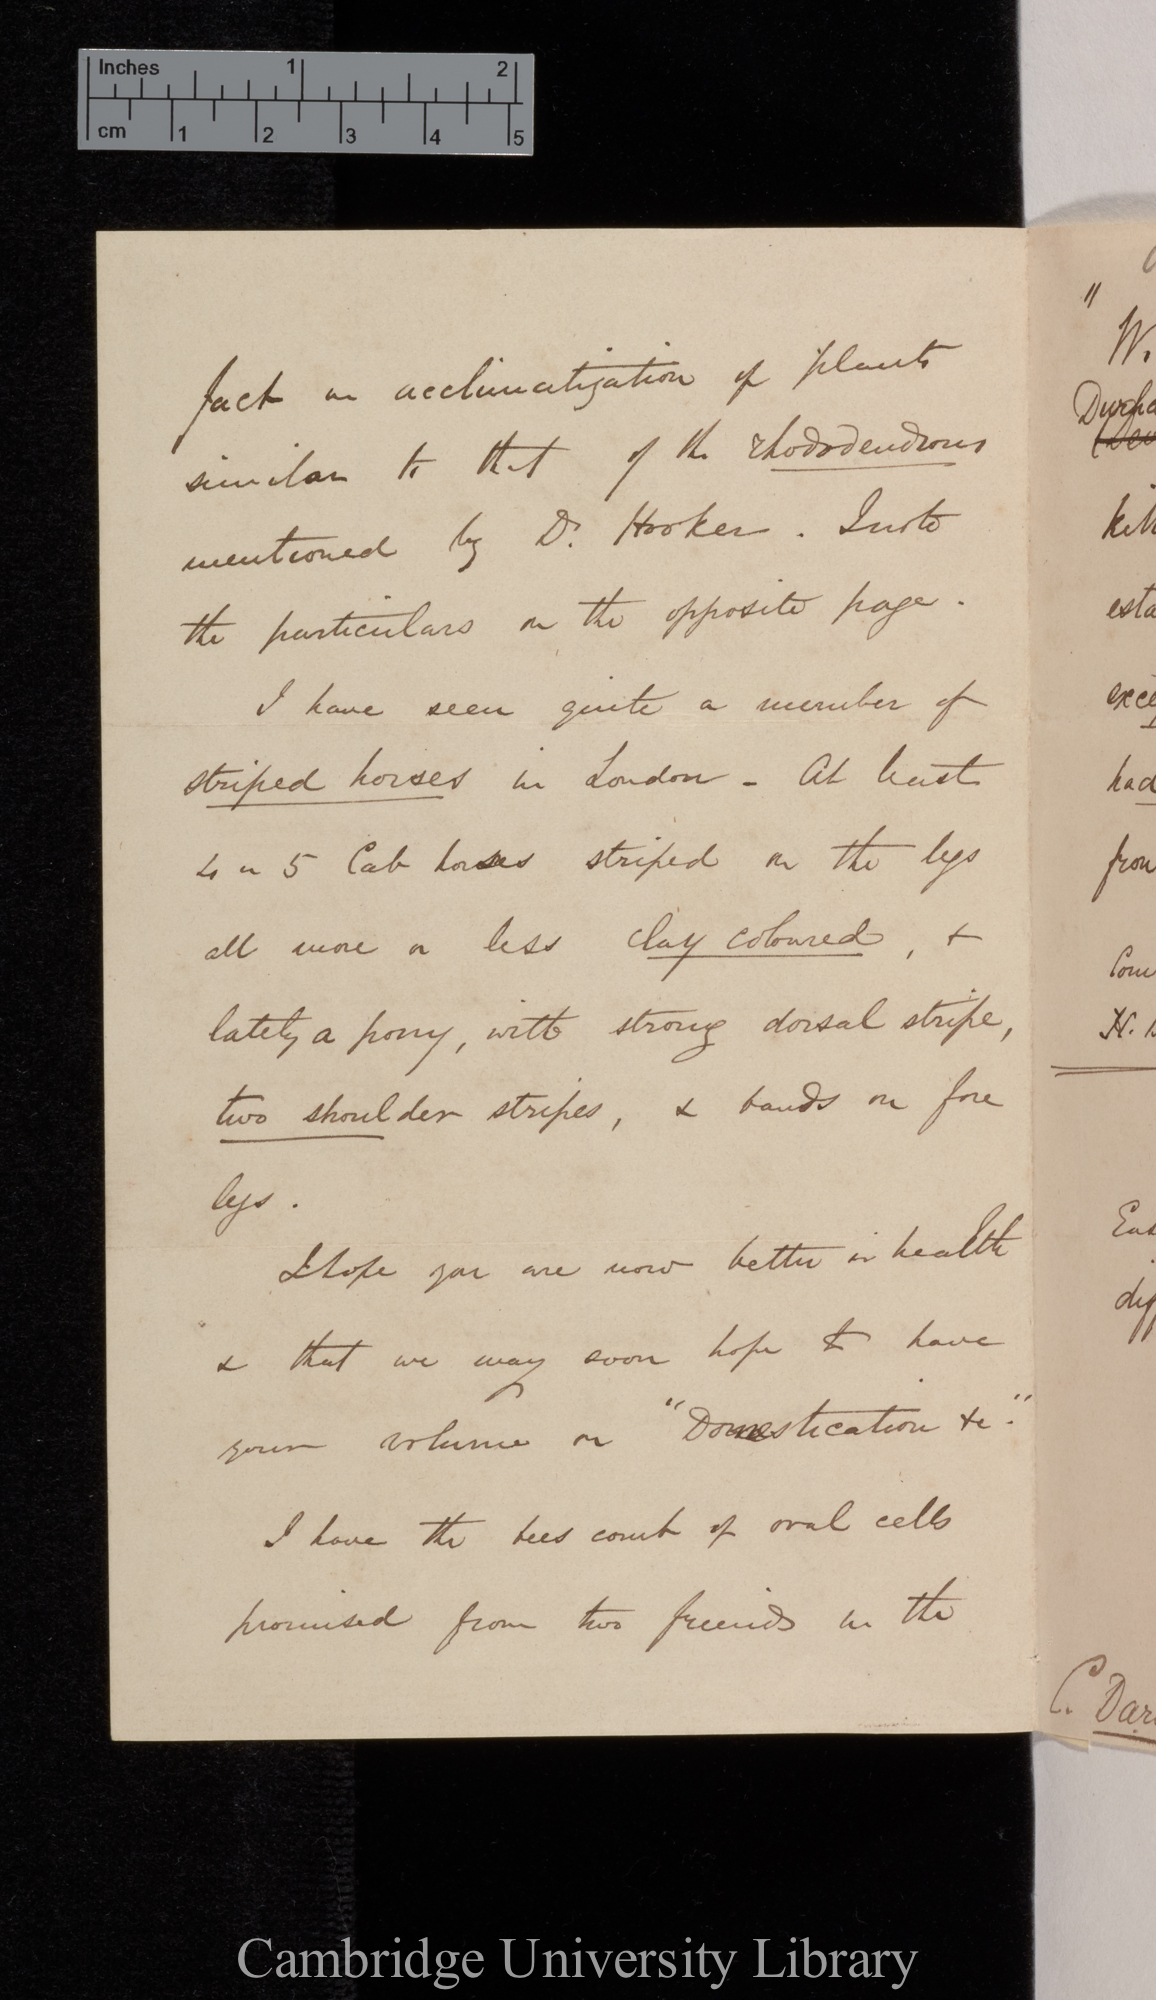 Inches 1 2
cm 1 2 3 4 5
fact on acclimatization of plants
similar to that of the rhododendrons
mentioned by Dr. Hooker. I note
the particulars on the opposite page.
I have seen quite a number of
striped horses in London - At least
4 or 5 Cab horses striped on the legs
all more or less clay coloured, &
lately a pony, with strong dorsal stripe,
two shoulder stripes, & bands on fore
legs.
I hope you are now better in health
& that we may soon hope to have
your volume on "Domestication &c."
I have the bees comb of oval cells
promised from two friends in the
"W.
had
C.
Cambridge University Library